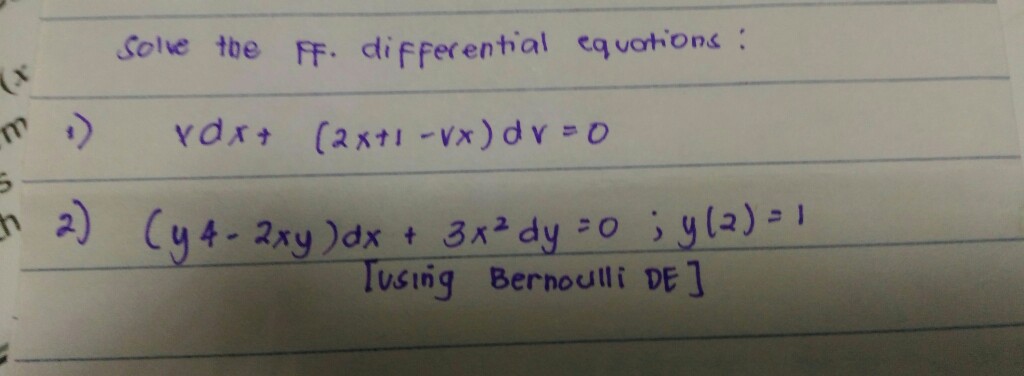 Solve the FF. differential equations :
1) vdx + (2x+1 -vx) dv = 0
2) (y4 - 2xy)dx + 3x² dy = 0 ; y(2) = 1
[using Bernoulli DE]